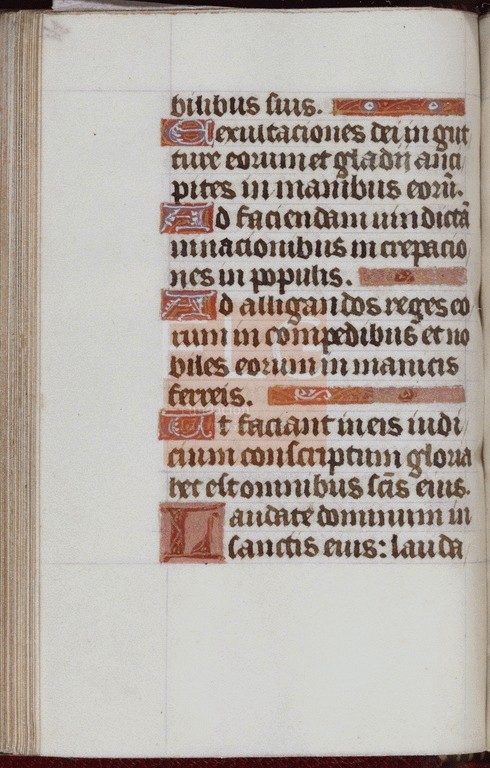 bilibus suis.
Exultaciones dei in gut
ture eorum et gladii anci
pites in manibus eorū.
Ad faciendam uindictā
in nacionibus increpacio
nes in populis.
Ad alligandos reges eo
rum in compedibus et no
biles eorum in manicis
ferreis.
Ut faciant in eis iudi
cium conscriptum gloria
hec est omnibus scīs eius.
Laudate dominum in
sanctis eius: lauda